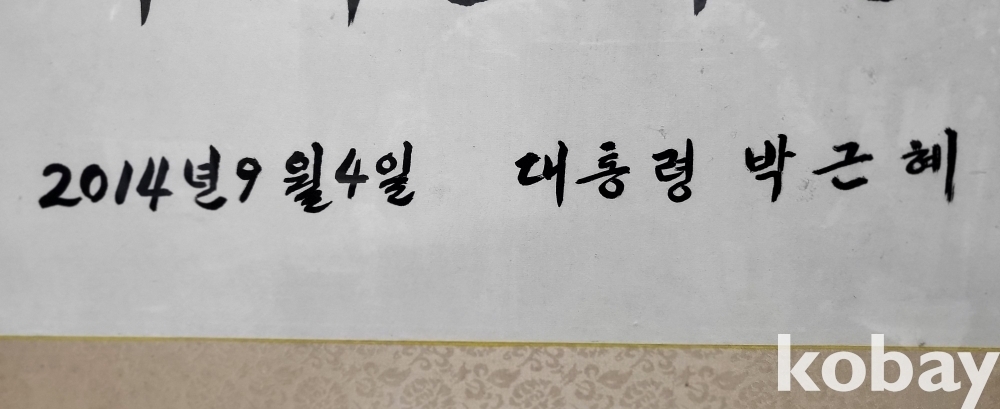 2014년9월4일 대통령 박근혜
kobay